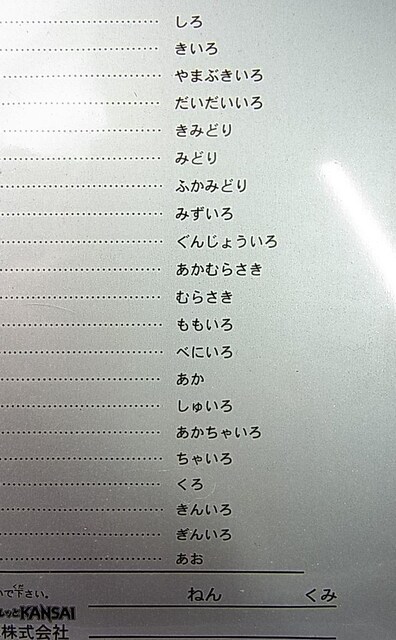 しろ
きいろ
やまぶきいろ
だいだいいろ
きみどり
みどり
ふかみどり
みずいろ
ぐんじょういろ
あかむらさき
むらさき
ももいろ
べにいろ
あか
しゅいろ
あかちゃいろ
ちゃいろ
くろ
きんいろ
ぎんいろ
あお
で下さい。 ねん くみ
KANSAI
株式会社